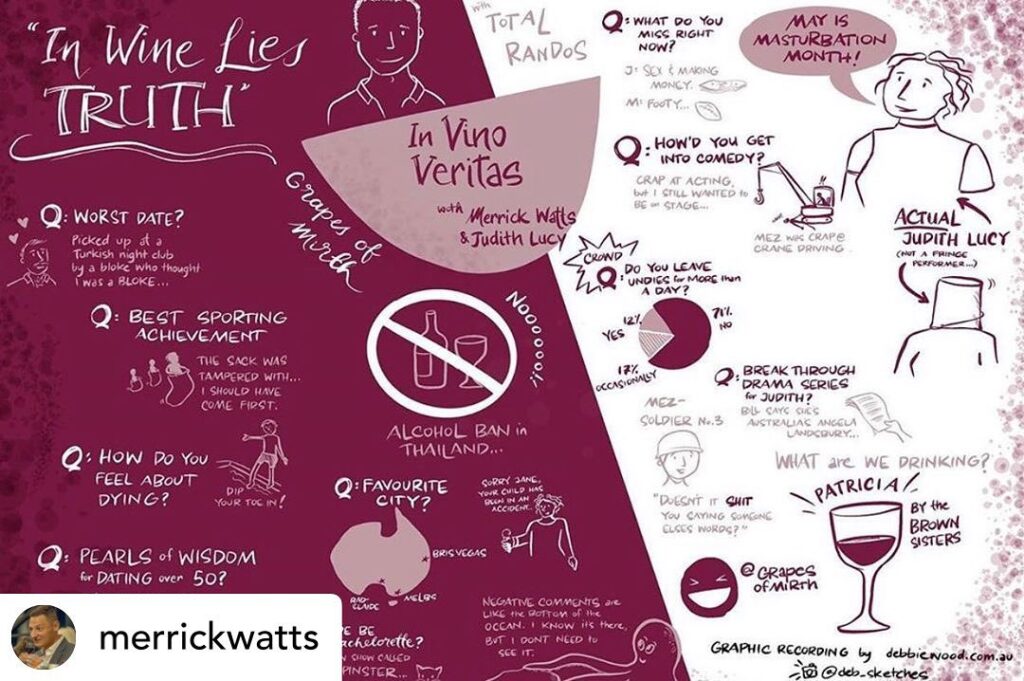 "In Wine Lies
TRUTH"
with
TOTAL
RANDOS
In Vino
Veritas
with Merrick Watts
& Judith Lucy
Grapes of
Mirth
Q: WORST DATE?
Picked up at a
Turkish night club
by a bloke who thought
I was a BLOKE...
Q: BEST SPORTING
ACHIEVEMENT
THE SACK WAS
TAMPERED WITH...
I SHOULD HAVE
COME FIRST.
Q: HOW DO YOU
FEEL ABOUT
DYING?
DIP
YOUR TOE IN!
Q: PEARLS of WISDOM
for DATING over 50?
NOOOOOO!!
ALCOHOL BAN in
THAILAND...
Q: FAVOURITE
CITY?
BRISVEGAS
RAD-
CLAIDE
MELBS
SORRY JANE,
YOUR CHILD HAS
BEEN IN AN
ACCIDENT...
RE BE
achelorette?
SHOW CALLED
PINSTER...
NEGATIVE COMMENTS are
LIKE THE BOTTOM OF THE
OCEAN. I KNOW it's THERE,
BUT I DONT NEED to
SEE IT.
Q: WHAT DO YOU
MISS RIGHT
NOW?
J: SEX & MAKING
MONEY.
M: FOOTY...
MAY IS
MASTURBATION
MONTH!
Q: HOW'D YOU GET
INTO COMEDY?
CRAP AT ACTING,
but I STILL WANTED to
BE on STAGE...
MEZ was CRAP@
CRANE DRIVING.
ACTUAL
JUDITH LUCY
(NOT A FRINGE
PERFORMER...)
CROWD
Q: DO YOU LEAVE
UNDIES for MORE than
A DAY?
12%
YES
71%
NO
17%
OCCASIONALLY
Q: BREAK THROUGH
DRAMA SERIES
for JUDITH?
BILL SAYS SHES
AUSTRALIAS ANGELA
LANDSBURY...
MEZ-
SOLDIER No.3
"DOESN'T IT SHIT
YOU SAYING SOMEONE
ELSES WORDS?"
WHAT are WE DRINKING?
PATRICIA
BY the
BROWN
SISTERS
@GRAPES
OF MIRTH
GRAPHIC RECORDING by debbiewood.com.au
@deb_sketches
merrickwatts